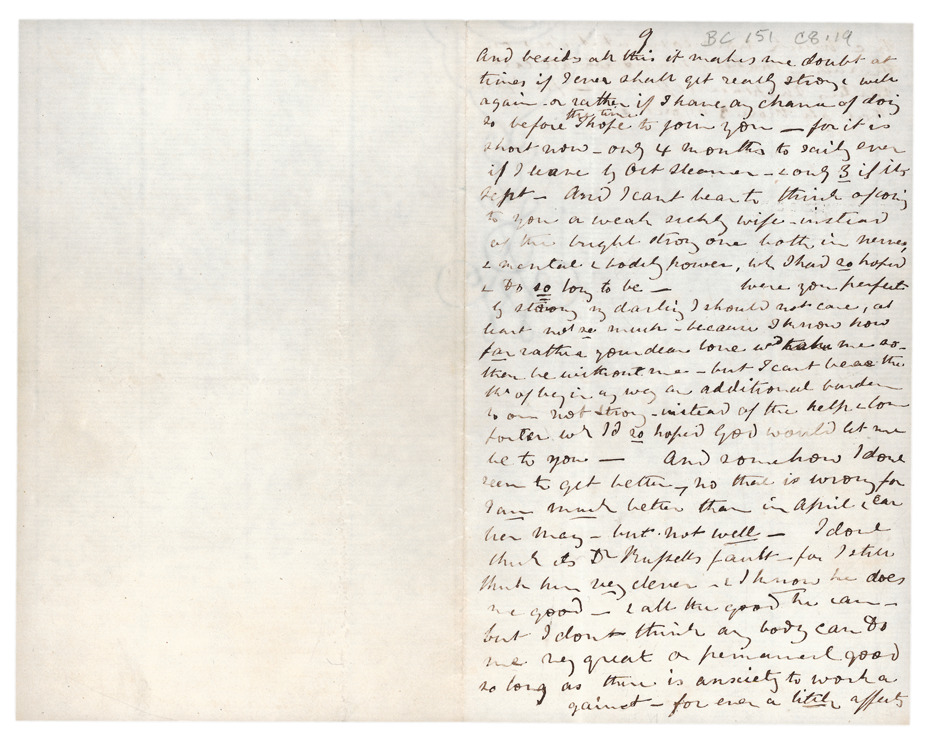 9
BC 151 C8.19
And besides all this it makes me doubt at
times if I ever shall get really strong & well
again - or rather if I have any chance of doing
so before the time I hope to join you — for it is
short now - only 4 months to sail, even
if I leave by Oct steamer - & only 3 if its
Sept - And I cant bear to think of going
to you a weak sickly wife - instead
of the bright strong one both in nerves,
& mental & bodily power, wh I had so hoped
& Do so long to be — Were you perfect
ly strong my darling I should not care, at
least not so much - because I know how
far rather your dear love wd take me so -
then be without me - but I cant bear the
tht of being in any way an additional burden
to one not strong - instead of the help & com
forter wh I'd so hoped God would let me
be to you — And somehow I dont
seem to get better, no that is wrong for
I am much better than in April & ear
lier May - but not well - I dont
think its Dr Russells fault - for I still
think him very clever - & I know he does
me good — & all the good he can -
but I dont think any body can Do
me very great or permanent good
so long as there is anxiety to work a
gainst - for even a little affects